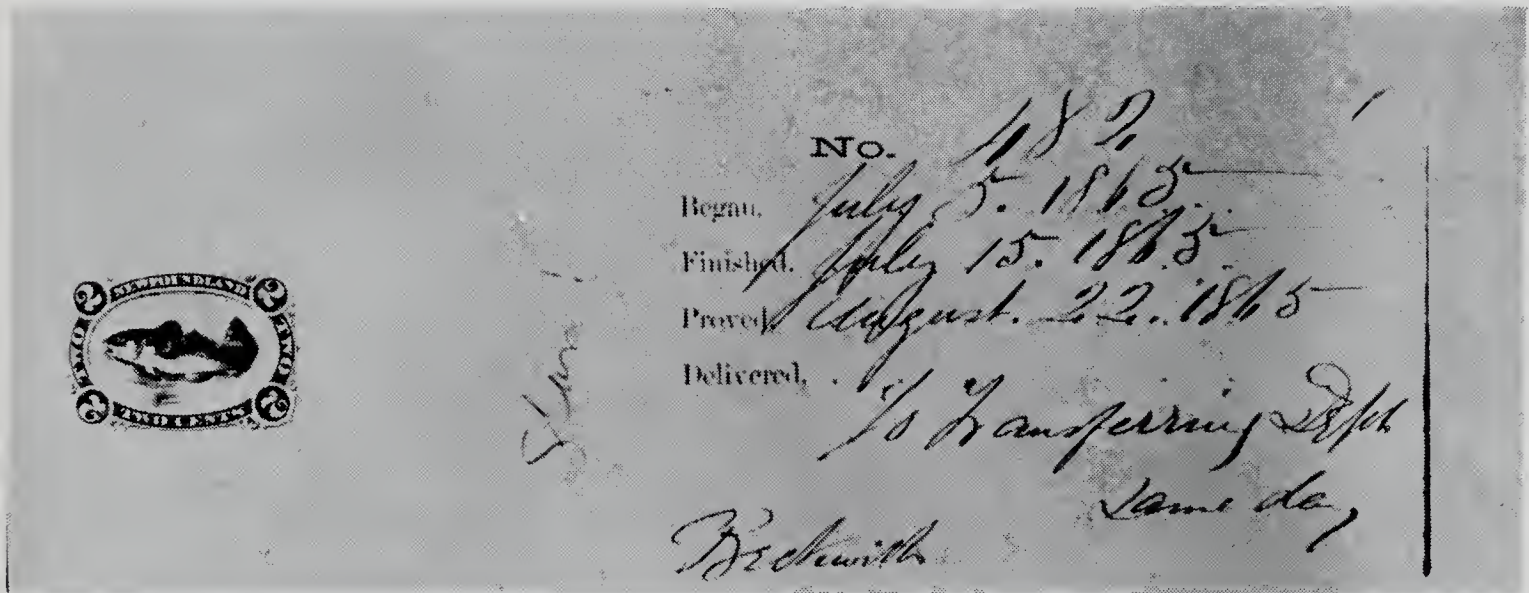 2 NEWFOUNDLAND 2
TWO
TWO
2 TWO CENTS 2
No. 482
Began. July 5. 1865
Finished. July 15. 1865
Proved, August. 22. 1865
Delivered,
To Transferring Dept
same day
Beckwith